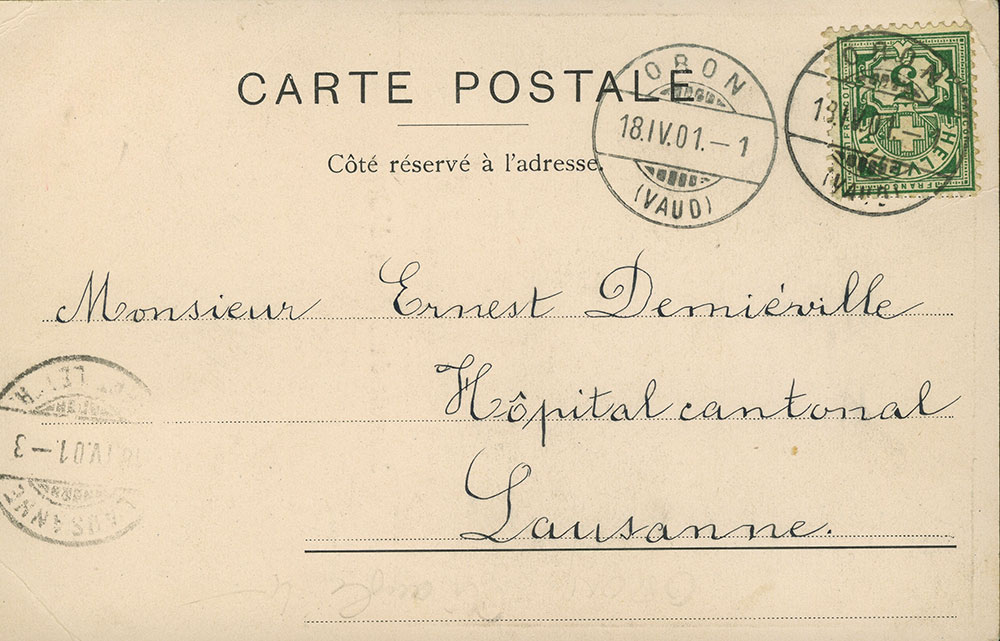 CARTE POSTALE
Côté réservé à l'adresse.
ORON
18.IV.01.–1
(VAUD)
ORON
18.IV.01.
(VAUD)
5
HELVETIA
FRANCO
Monsieur Ernest Demiéville
Hôpital cantonal
Lausanne.
LETTR
18.IV.01–3
LAUSANNE